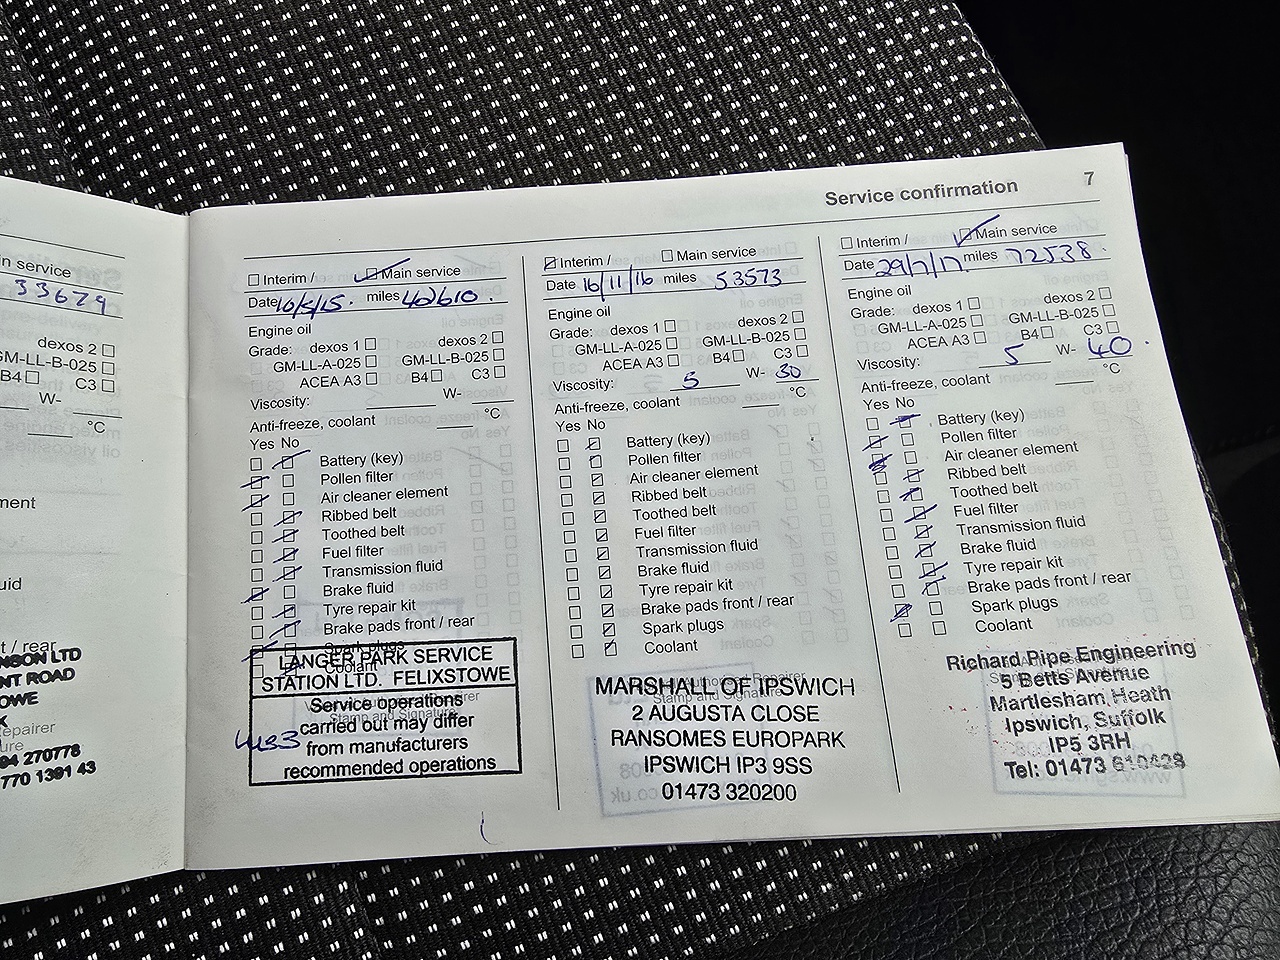 Service confirmation 7
in service
33679
dexos 2
GM-LL-B-025
B4 C3
W-
°C
ment
uid
t / rear
NSON LTD
NT ROAD
OWE
epairer
ure
94 270778
770 1391 43
Interim / Main service
Date 10/5/15. miles 40610.
Engine oil
Grade: dexos 1 dexos 2
GM-LL-A-025 GM-LL-B-025
ACEA A3 B4 C3
Viscosity: W-
Anti-freeze, coolant °C
Yes No
Battery (key)
Pollen filter
Air cleaner element
Ribbed belt
Toothed belt
Fuel filter
Transmission fluid
Brake fluid
Tyre repair kit
Brake pads front / rear
Spark plugs
Coolant
LANGER PARK SERVICE
STATION LTD. FELIXSTOWE
Service operations
carried out may differ
from manufacturers
recommended operations
Stamp and Signature
Interim / Main service
Date 16/11/16 miles 53573
Engine oil
Grade: dexos 1 dexos 2
GM-LL-A-025 GM-LL-B-025
ACEA A3 B4 C3
Viscosity: 5 W- 30
Anti-freeze, coolant °C
Yes No
Battery (key)
Pollen filter
Air cleaner element
Ribbed belt
Toothed belt
Fuel filter
Transmission fluid
Brake fluid
Tyre repair kit
Brake pads front / rear
Spark plugs
Coolant
Stamp and Signature
MARSHALL OF IPSWICH
2 AUGUSTA CLOSE
RANSOMES EUROPARK
IPSWICH IP3 9SS
01473 320200
Interim / Main service
Date 29/7/17 miles 72538.
Engine oil
Grade: dexos 1 dexos 2
GM-LL-A-025 GM-LL-B-025
ACEA A3 B4 C3
Viscosity: 5 W- 40
Anti-freeze, coolant °C
Yes No
Battery (key)
Pollen filter
Air cleaner element
Ribbed belt
Toothed belt
Fuel filter
Transmission fluid
Brake fluid
Tyre repair kit
Brake pads front / rear
Spark plugs
Coolant
Richard Pipe Engineering
5 Betts Avenue
Martlesham Heath
Ipswich, Suffolk
IP5 3RH
Tel: 01473 610428